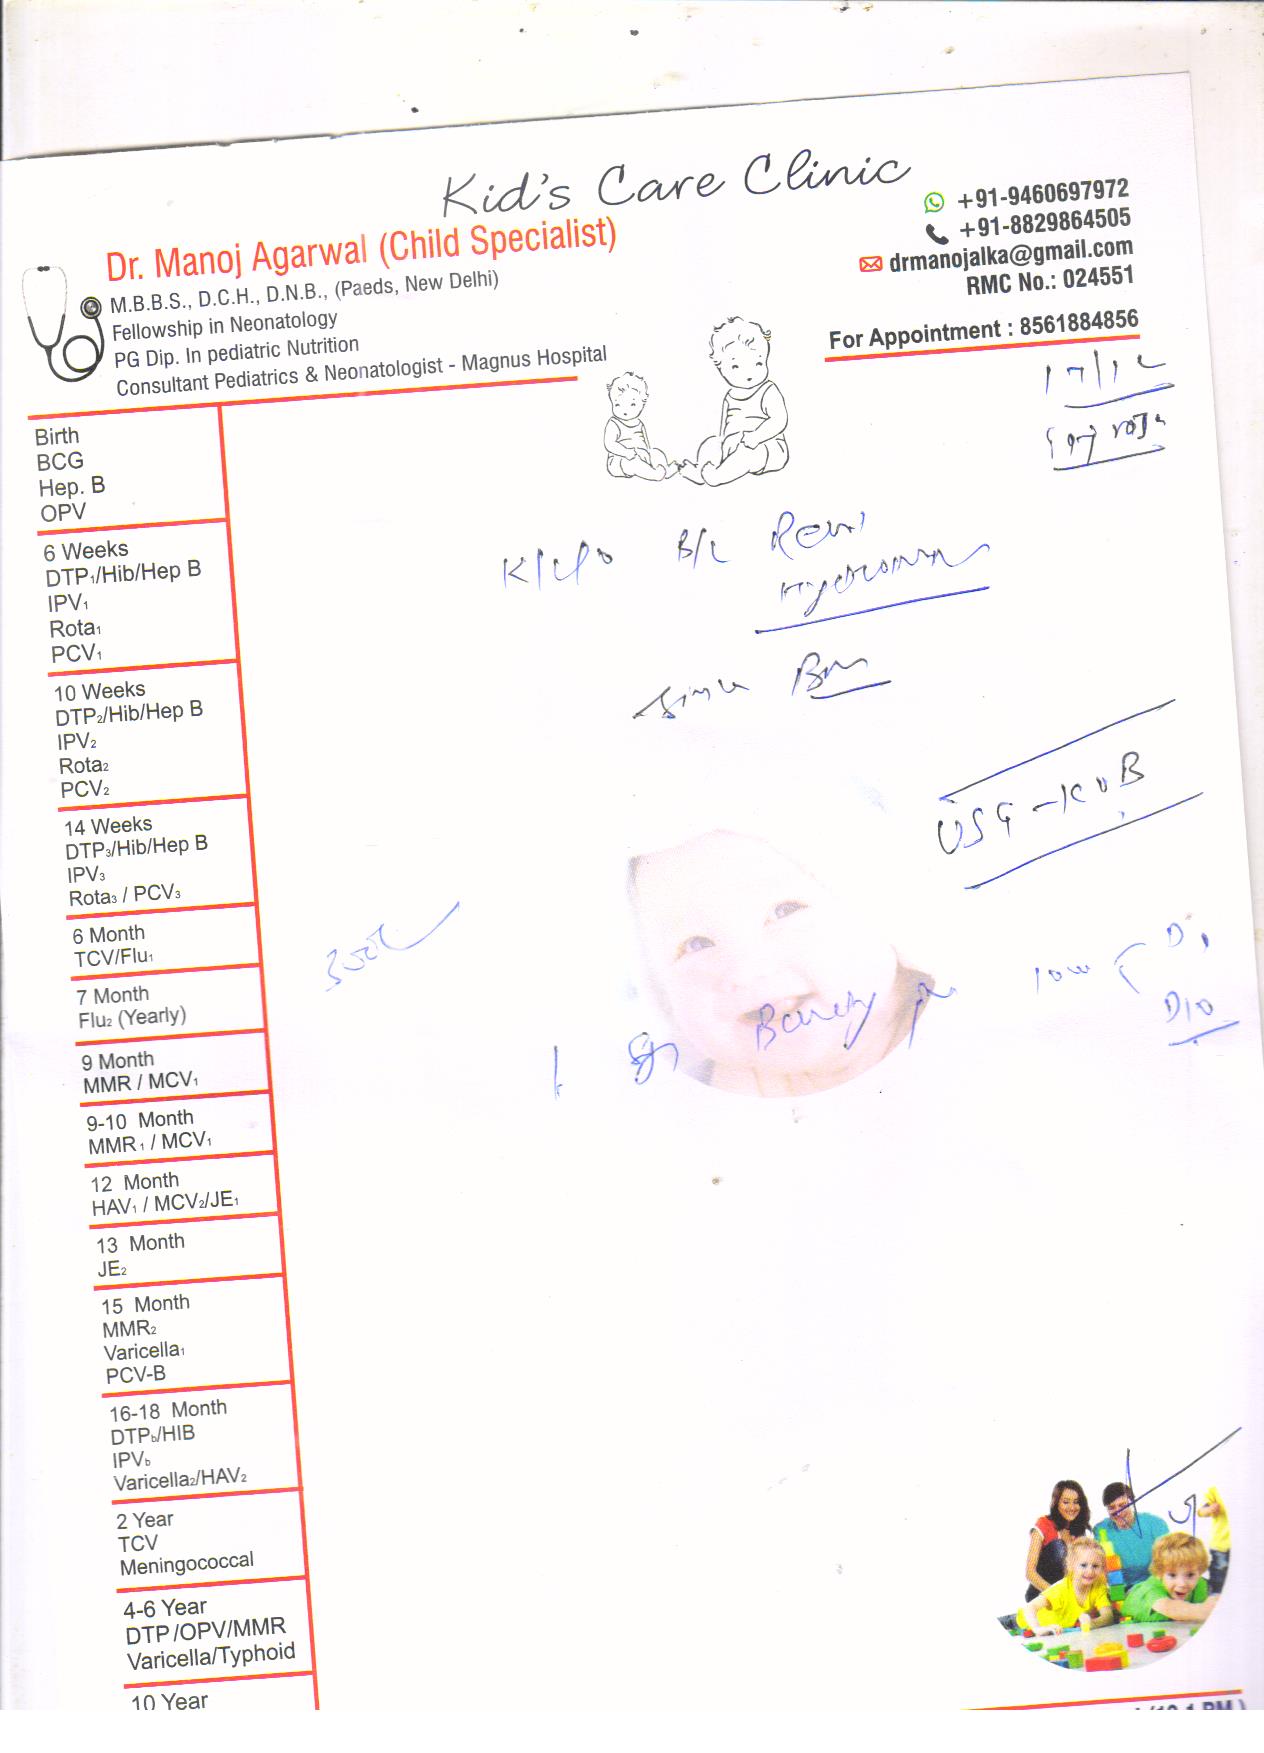 Kid's Care Clinic
Dr. Manoj Agarwal (Child Specialist)
M.B.B.S., D.C.H., D.N.B., (Paeds, New Delhi)
Fellowship in Neonatology
PG Dip. In pediatric Nutrition
Consultant Pediatrics & Neonatologist - Magnus Hospital
+91-9460697972
+91-8829864505
drmanojalka@gmail.com
RMC No.: 024551
For Appointment : 8561884856
17/12
K/c/o B/L Renal
since
USG - KUB
Birth
BCG
Hep. B
OPV
6 Weeks
DTP₁/Hib/Hep B
IPV₁
Rota₁
PCV₁
10 Weeks
DTP₂/Hib/Hep B
IPV₂
Rota₂
PCV₂
14 Weeks
DTP₃/Hib/Hep B
IPV₃
Rota₃ / PCV₃
6 Month
TCV/Flu₁
7 Month
Flu₂ (Yearly)
9 Month
MMR / MCV₁
9-10 Month
MMR₁ / MCV₁
12 Month
HAV₁ / MCV₂/JE₁
13 Month
JE₂
15 Month
MMR₂
Varicella₁
PCV-B
16-18 Month
DTPb/HIB
IPVb
Varicella₂/HAV₂
2 Year
TCV
Meningococcal
4-6 Year
DTP/OPV/MMR
Varicella/Typhoid
10 Year